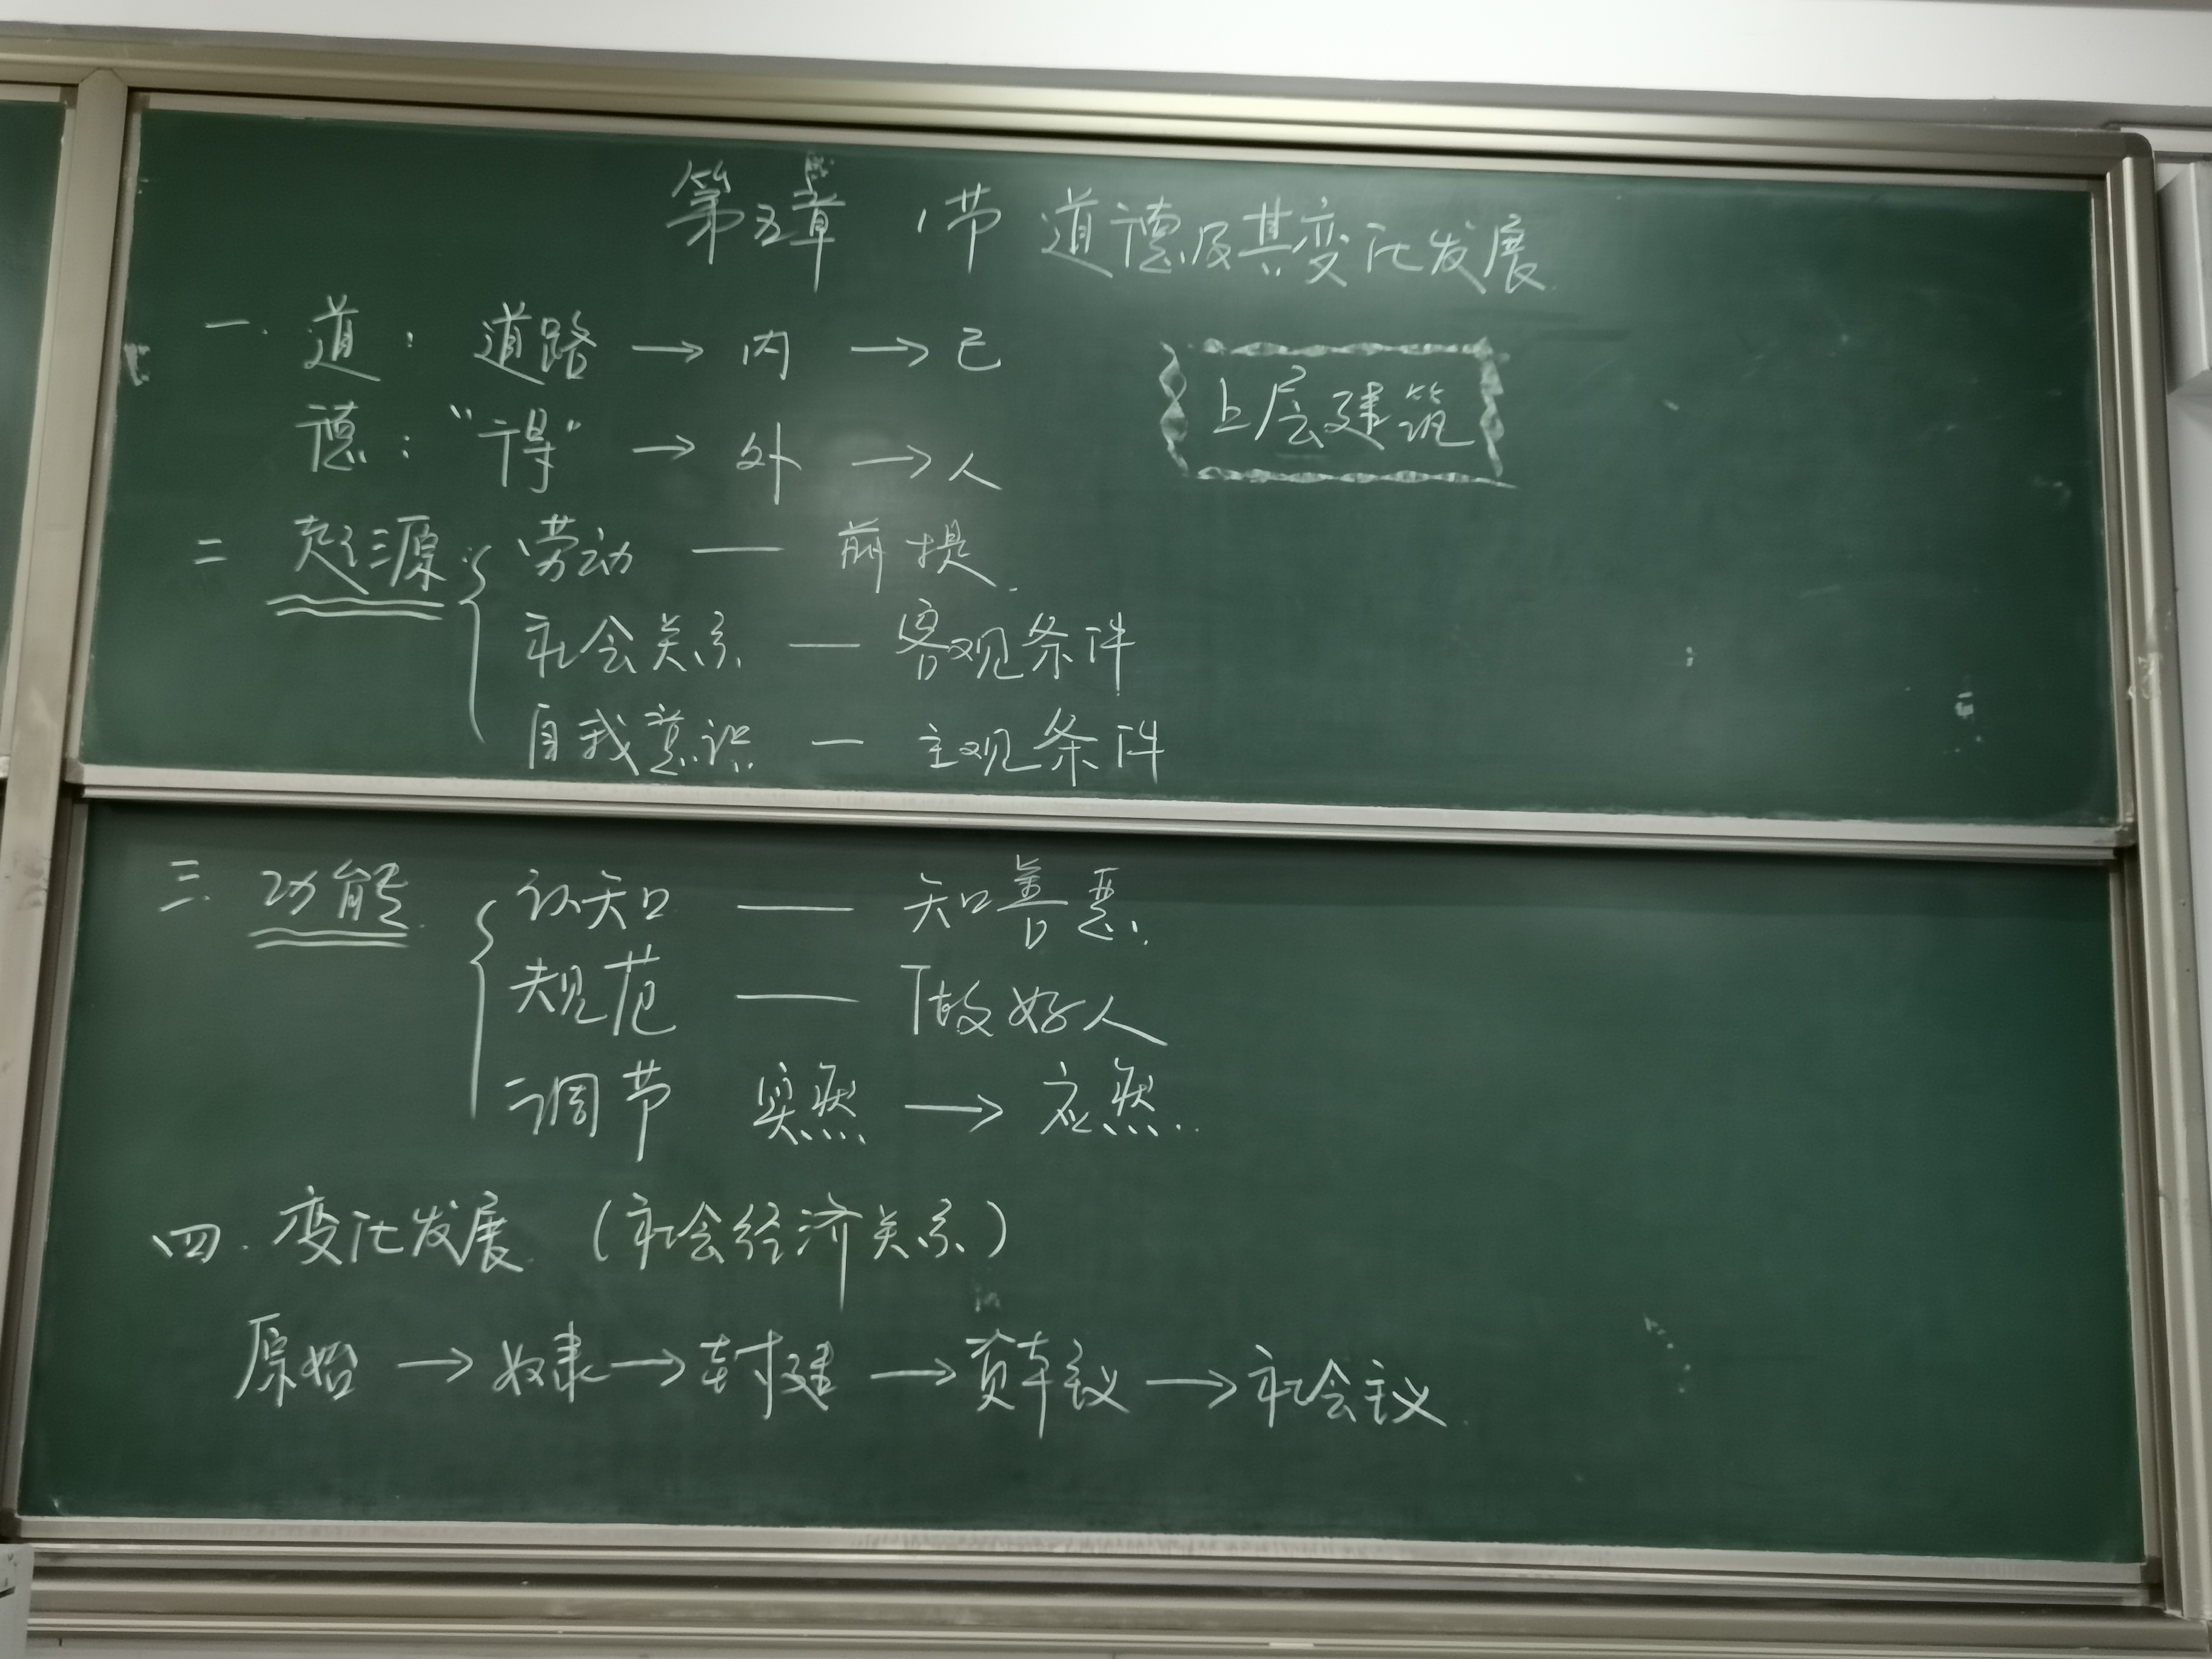 第五章 1节 道德及其变化发展
一. 道: 道路 → 内 → 己
德: "得" → 外 → 人
上层建筑
二 起源: { 劳动 — 前提.
社会关系 — 客观条件
自我意识 — 主观条件
三. 功能. { 认知 — 知善恶.
规范 — 做好人
调节 实然 → 应然.
四. 变化发展. (社会经济关系)
原始 → 奴隶 → 封建 → 资本主义 → 社会主义.